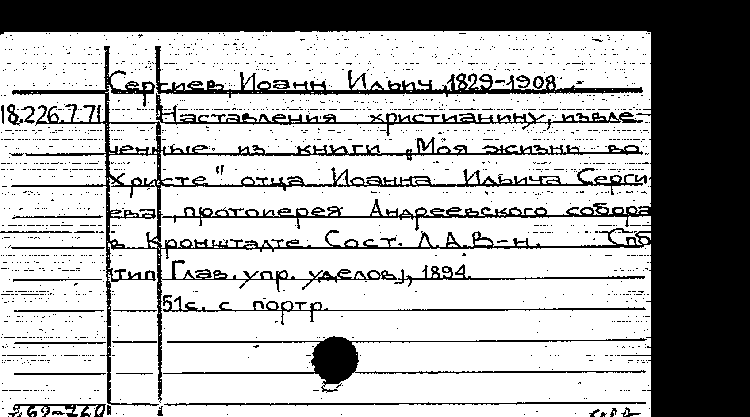 Сергиев, Иоанн Ильич, 1829-1908.-
18.226.7.71 Наставления христианину, извле-
ченные из книги „Моя жизнь во
Христе" отца Иоанна Ильича Серги-
ева, протоиерея Андреевского собора
в Кронштадте. Сост. Л.А.В-н. Спб
тип. Глав. упр. уделов, 1894.
51с. с портр.